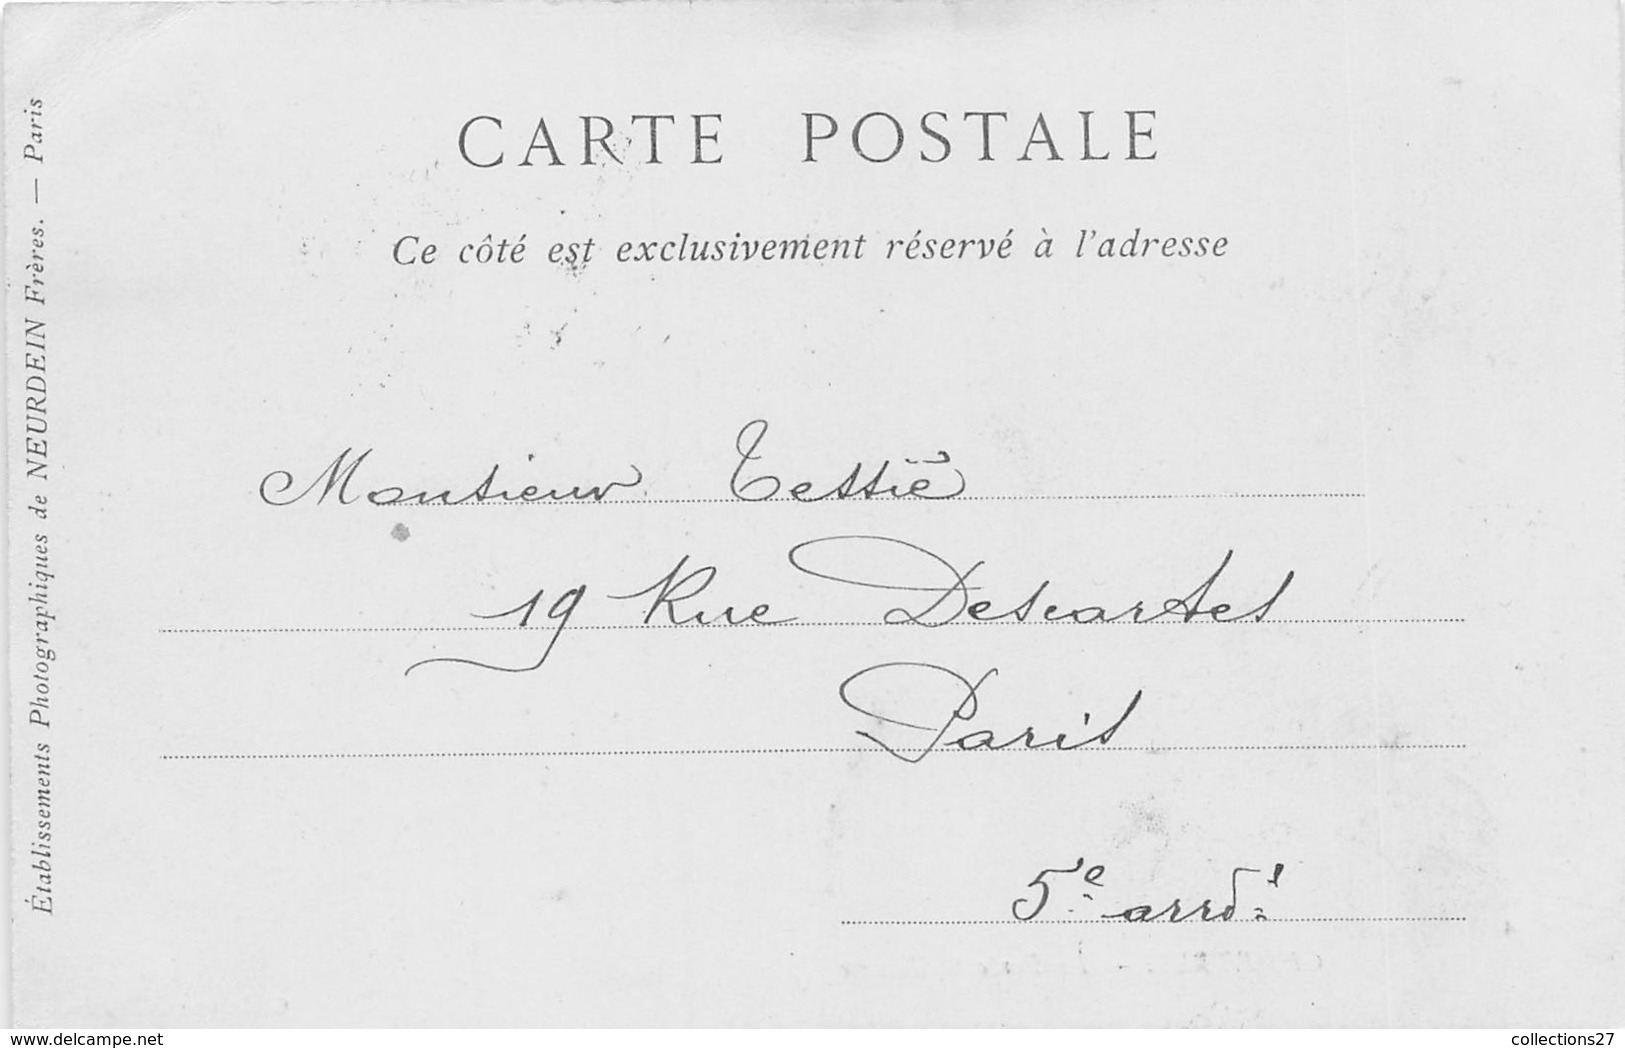 CARTE POSTALE
Ce côté est exclusivement réservé à l'adresse
Établissements Photographiques de NEURDEIN Frères. — Paris
Monsieur
19 Rue Descartes
Paris
5e arrdt
delcampe.net
collections27